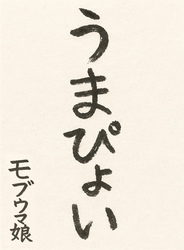 うまぴょい
モブウマ娘